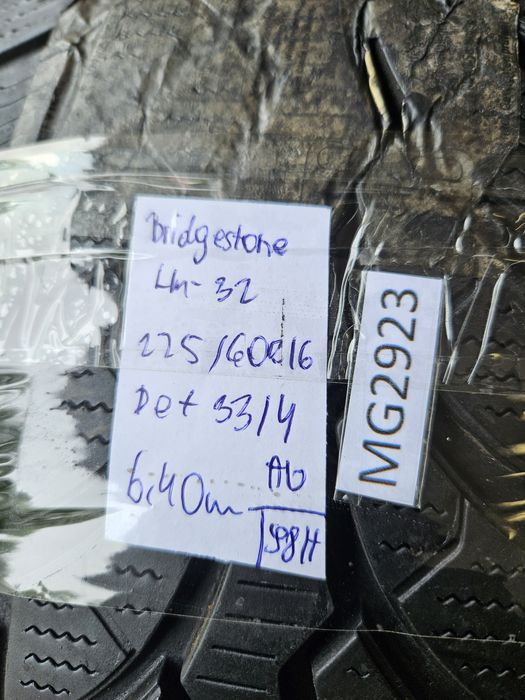 Bridgestone
LM-32
225/60R16
Dot 33/4
AO
6,40m
98H
MG2923